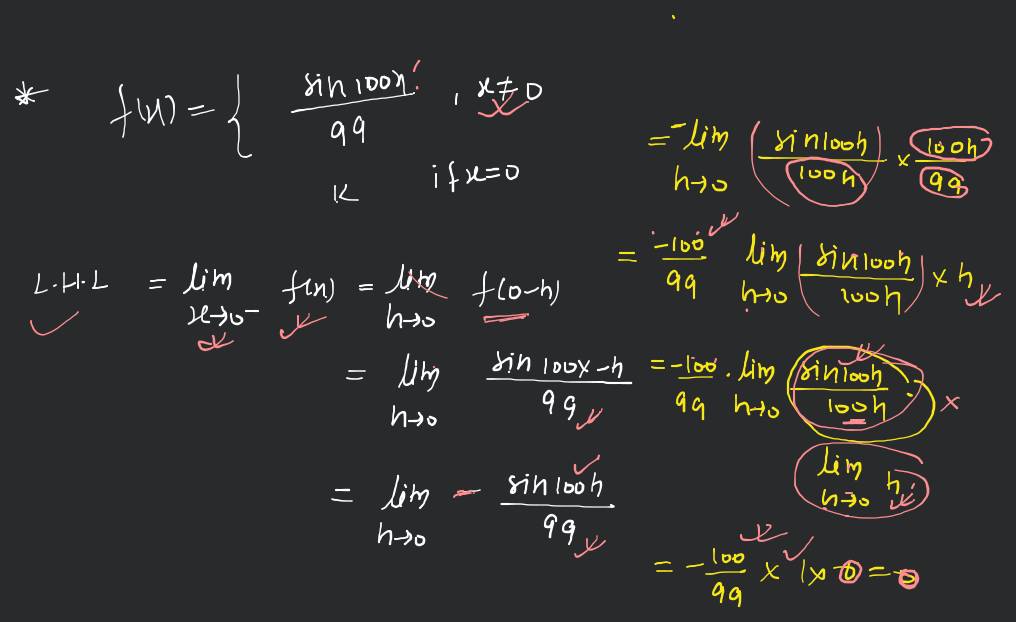 * f(x) = { sin 100x / 99 , x ≠ 0
K if x = 0
L.H.L = lim x→0⁻ f(x) = lim h→0 f(0-h)
= lim h→0 sin 100x-h / 99
= lim h→0 - sin 100h / 99
= - lim h→0 ( sin 100h / 100h ) × 100h / 99
= -100 / 99 lim h→0 ( sin 100h / 100h ) × h
= -100 / 99 . lim h→0 ( sin 100h / 100h ) ×
lim h→0 h
= - 100 / 99 × 1 × 0 = 0